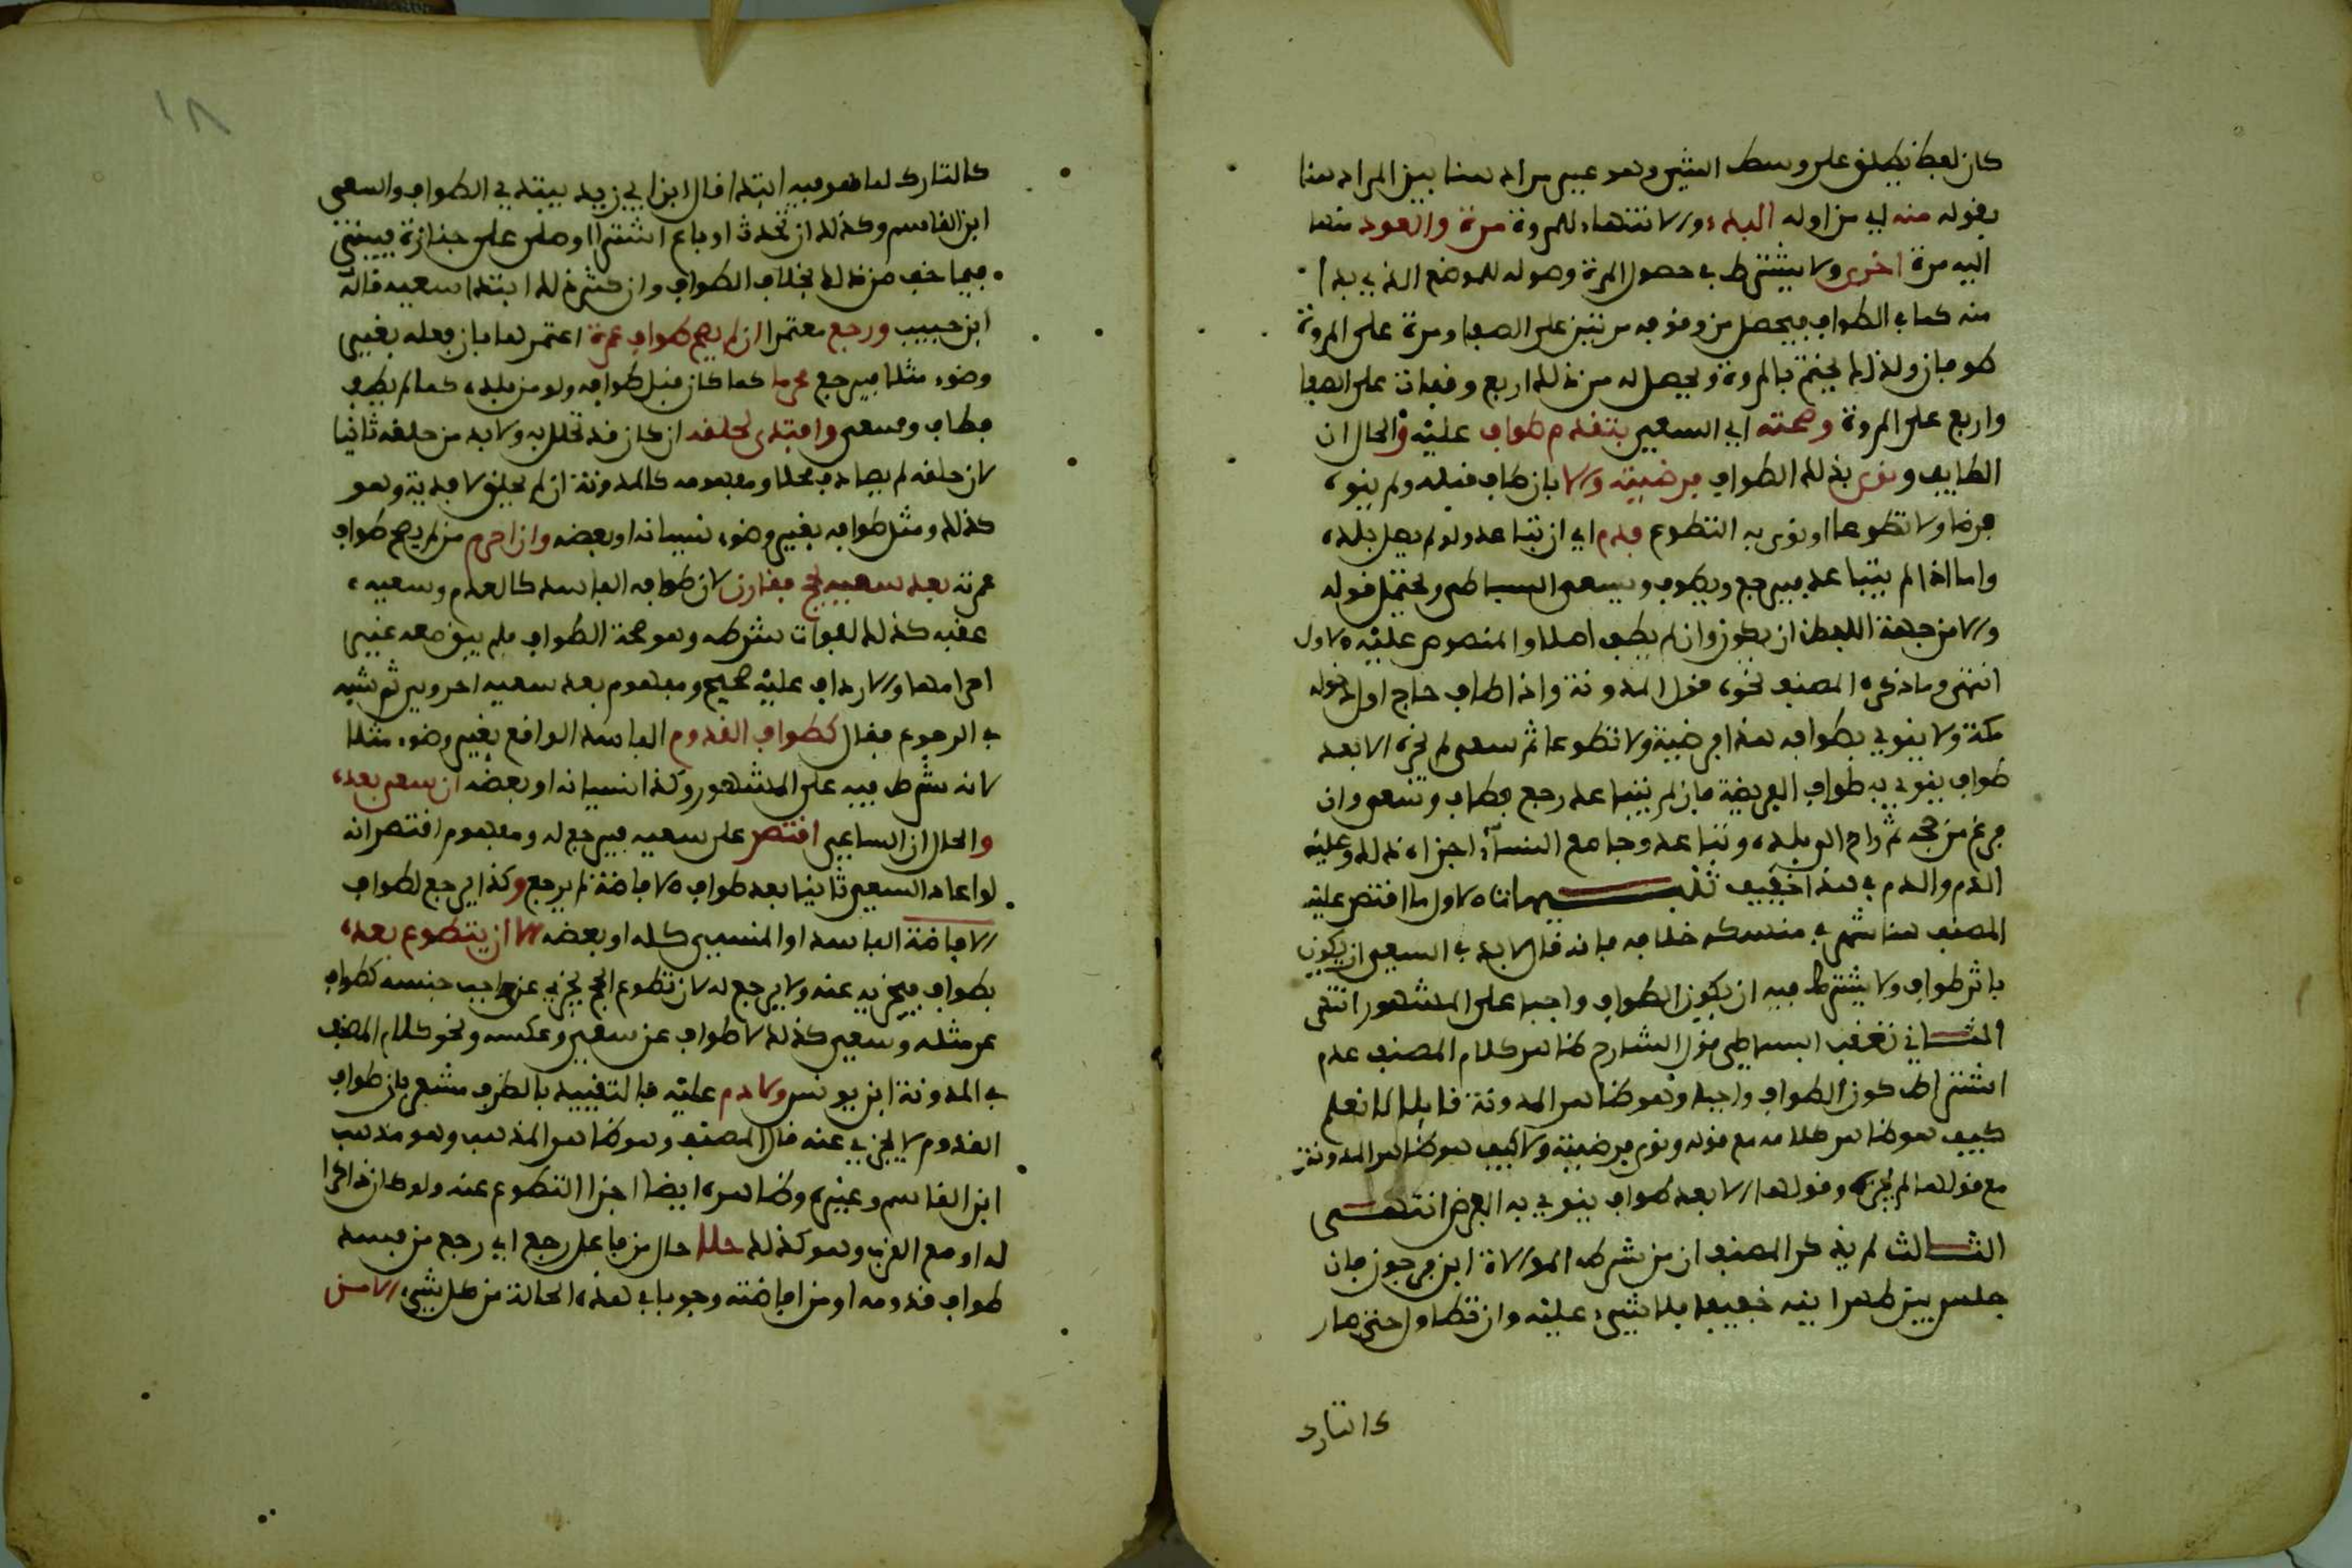 كان لفظ يطلق على وسط الشيء وهو غير مراد هنا بين المراد هنا
بقوله منه اي من اوله البدء والانتهاء للمروة مرة والعود منها
اليه مرة اخرى ولا يشترط في حصول المرة وصوله للموضع الذي بدا
منه كما في الطواف فيحصل من وقوفه مرتين على الصفا ومرة على المروة
طوفان ولذلك يختم بالمروة ويحصل له من ذلك اربع وقفات على الصفا
واربع على المروة وصحته اي السعي بتقدم طواف عليه والحال ان
الطايف ونوى بذلك الطواف فرضيته والا بان طاف قبله ولم ينو
فرضا ولا تطوعا او نوى به التطوع فدم اي ان تباعد ولو لم يصل بلده
واما اذا لم يتباعد فيرجع ويطوف ويسعى البساطي ويحتمل قوله
والا من جهة اللفظ ان يكون وان لم يطف اصلا والمنصوص عليه الاول
انتهى وما ذكره المصنف نحوه قول المدونة واذا طاف حاج اول دخوله
مكة ولا ينوي بطوافه هذا فرضية ولا تطوعا ثم سعى لم يجزه الا بعد
طواف ينوي به طواف الفريضة فان لم يتباعد رجع فطاف وسعى وان
فرغ من حجه ثم راح الى بلده وتباعد وجامع النساء اجزاه ذلك وعليه
الدم والدم في هذا خفيف تنبيهات الاول ما اقتصر عليه
المصنف هنا شهر في منسكه خلافه فانه قال لا بد في السعي ان يكون
باثر طواف ولا يشترط فيه ان يكون الطواف واجبا على المشهور انتهى
الثاني تعقب البساطي قول الشارح ظاهر كلام المصنف عدم
اشتراط كون الطواف واجبا وهو ظاهر المدونة قايلا لا نعلم
كيف هو ظاهر كلامه مع قوله ونوى فرضيته ولا كيف هو ظاهر المدونة
مع قولها لم يجزه وقولها الا بعد طواف ينوي به الفرض انتهى
الثالث لم يذكر المصنف ان من شرطه الموالاة ابن فرحون فان
جلس بين ظهرانيه خفيفا فلا شيء عليه وان تطاول حتى صار
كالتارك
١٨
كالتارك لما هو فيه ابتدا قال ابن ابي زيد يبتدي الطواف والسعي
ابن القاسم وكذلك ان تحدث او باع اشترا او صلى على جنازة فيبني
فيما خف من ذلك بخلاف الطواف وان كثر ذلك ابتدا سعيه قاله
ابن حبيب ورجع معتمرا ان لم يصح طواف عمرة اعتمر لها بان فعله بغير
وضوء مثلا فيرجع محرما كما كان قبل طوافه ولو من بلده كما لم يطف
فطاف وسعى وافتدى لحلقه ان كان قد تحلل به ولا بد من حلقه ثانيا
لان حلقه لم يصادف محلا ومفهومه كالمدونة ان لم يحلق لا فدية وهو
كذلك ومثل طوافه بغير وضوء نسيانه او بعضه وان احرم من لم يصح طواف
عمرته بعد سعيه بحج فقارن لان طوافه الفاسد كالعدم وسعيه
عقبه كذلك لفوات شرطه وهو صحة الطواف فلم يبق معه غير
احرامها والارداف عليه صحيح ومفهوم بعد سعيه احروي ثم شبه
في الرجوع فقال كطواف القدوم الفاسد الواقع بغير وضوء مثلا
لانه شرط فيه على المشهور وكذا نسيانه او بعضه ان سعى بعده
والحال ان الساعي اقتصر على سعيه فيرجع له ومفهوم اقتصر انه
لو اعاد السعي ثانيا بعد طواف الافاضة لم يرجع وكذا يرجع لطواف
الافاضة الفاسد او المنسي كله او بعضه الا ان يتطوع بعده
بطواف فيجزيه عنه ولا يرجع له لان تطوع الحج يجزي عن واجب جنسه كطواف
عن مثله وسعي كذلك لا طواف عن سعي وعكسه ونحو كلام المصنف
في المدونة ابن يونس ولا دم عليه فالتقييد بالظرف مشعر بان طواف
القدوم لا يجزي عنه قال المصنف وهو ظاهر المذهب وهو مذهب
ابن القاسم وغيره وظاهره ايضا اجزا التطوع عنه ولو كان ذاكرا
له او مع القرب وهو كذلك حلا حال من فاعل رجع اي رجع من فسد
طواف قدومه او من افاضته وجوبا في هذه الحالة من كل شيء الا من